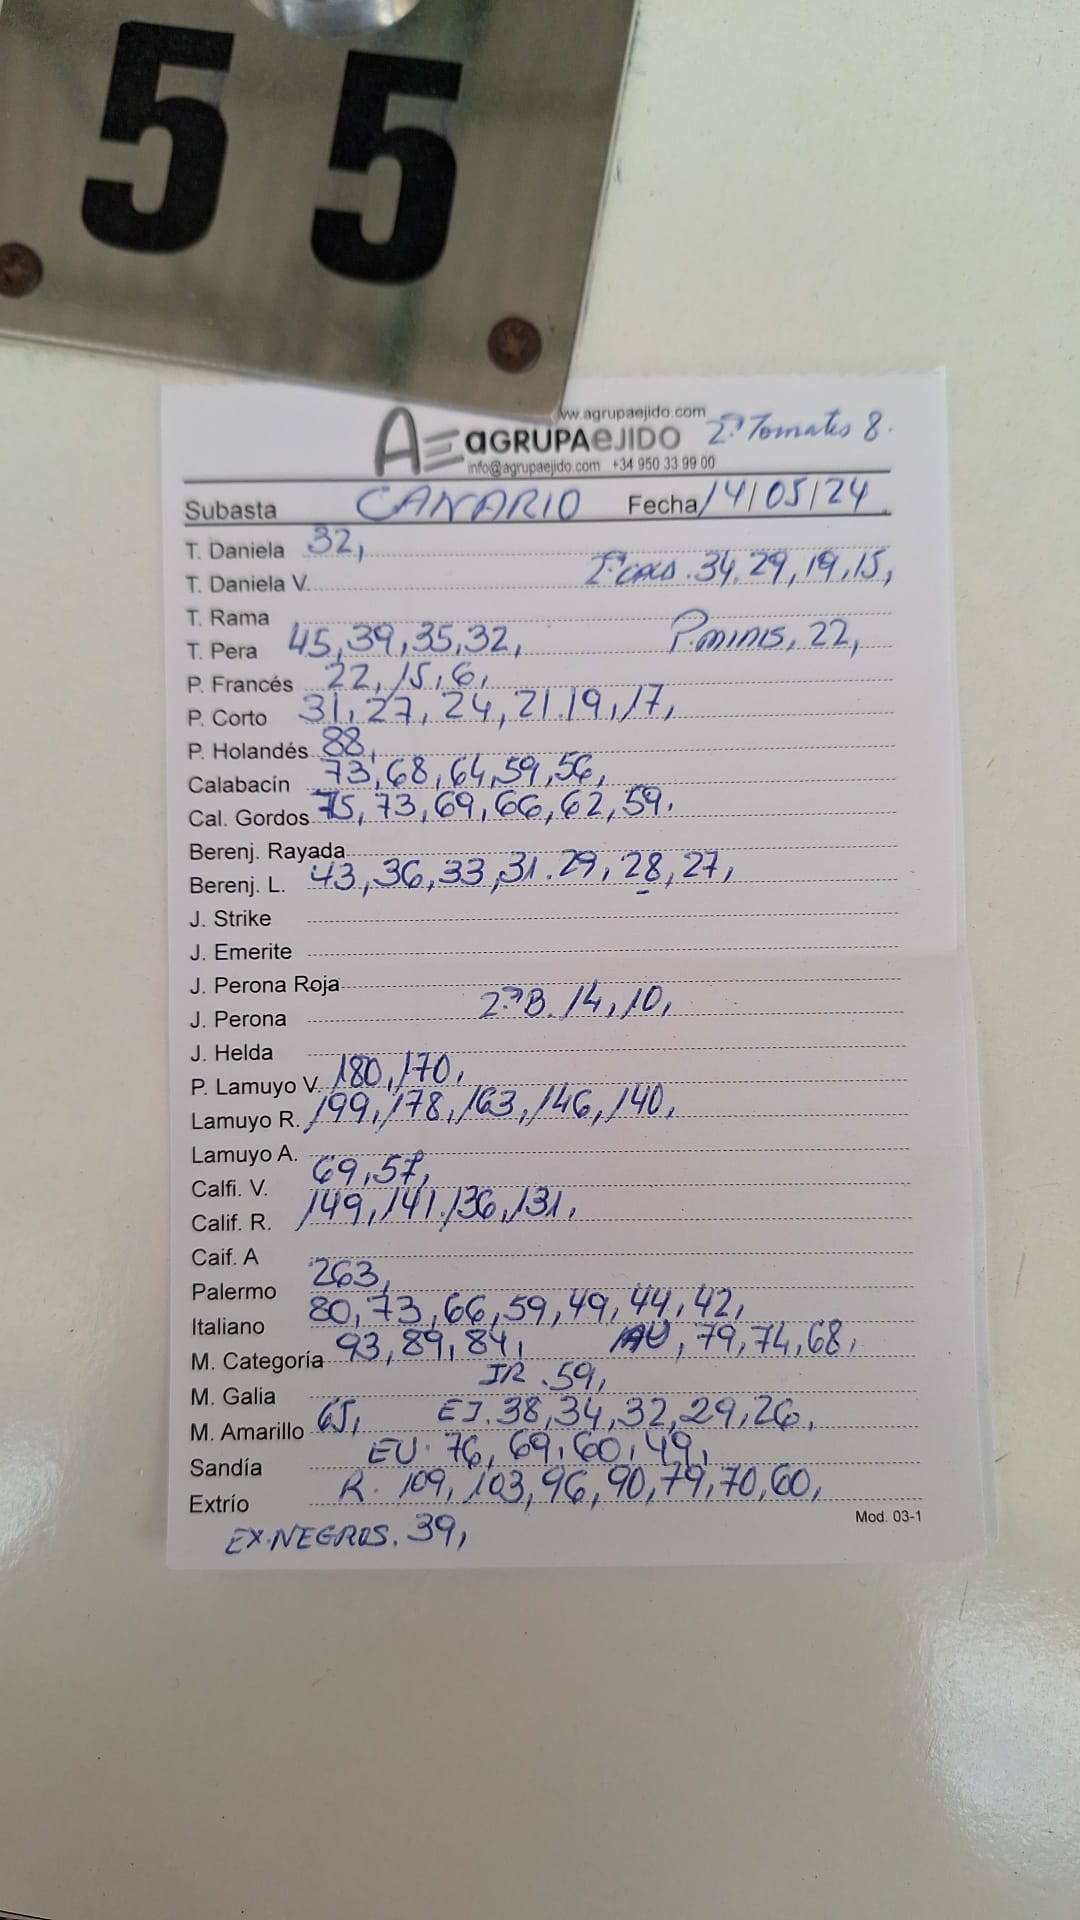 55
ww.agrupaejido.com
AGRUPAEJIDO 2ª Tomates 8.
info@agrupaejido.com +34 950 33 99 00
Subasta CANARIO Fecha 14/05/24
T. Daniela 32,
T. Daniela V. 2ª CALA. 34, 29, 19, 15,
T. Rama
T. Pera 45, 39, 35, 32, P. MINIS, 22,
P. Francés 22, 15, 6,
P. Corto 31, 27, 24, 21. 19, 17,
P. Holandés 88,
Calabacín 73, 68, 64, 59, 56,
Cal. Gordos 75, 73, 69, 66, 62, 59.
Berenj. Rayada
Berenj. L. 43, 36, 33, 31. 29, 28, 27,
J. Strike
J. Emerite
J. Perona Roja
J. Perona 2ª B. 14, 10,
J. Helda
P. Lamuyo V. 180, 170,
Lamuyo R. 199, 178, 163, 146, 140,
Lamuyo A.
Calfi. V. 69, 57,
Calif. R. 149, 141. 136, 131,
Caif. A
Palermo 263,
Italiano 80, 73, 66, 59, 49, 44, 42,
M. Categoría 93, 89, 84, AU, 79, 74, 68,
M. Galia IR. 59,
M. Amarillo 65, EJ. 38, 34, 32, 29, 26,
Sandía EU. 76, 69, 60, 49,
Extrío R. 109, 103, 96, 90, 79, 70, 60,
Mod. 03-1
EX. NEGROS. 39,